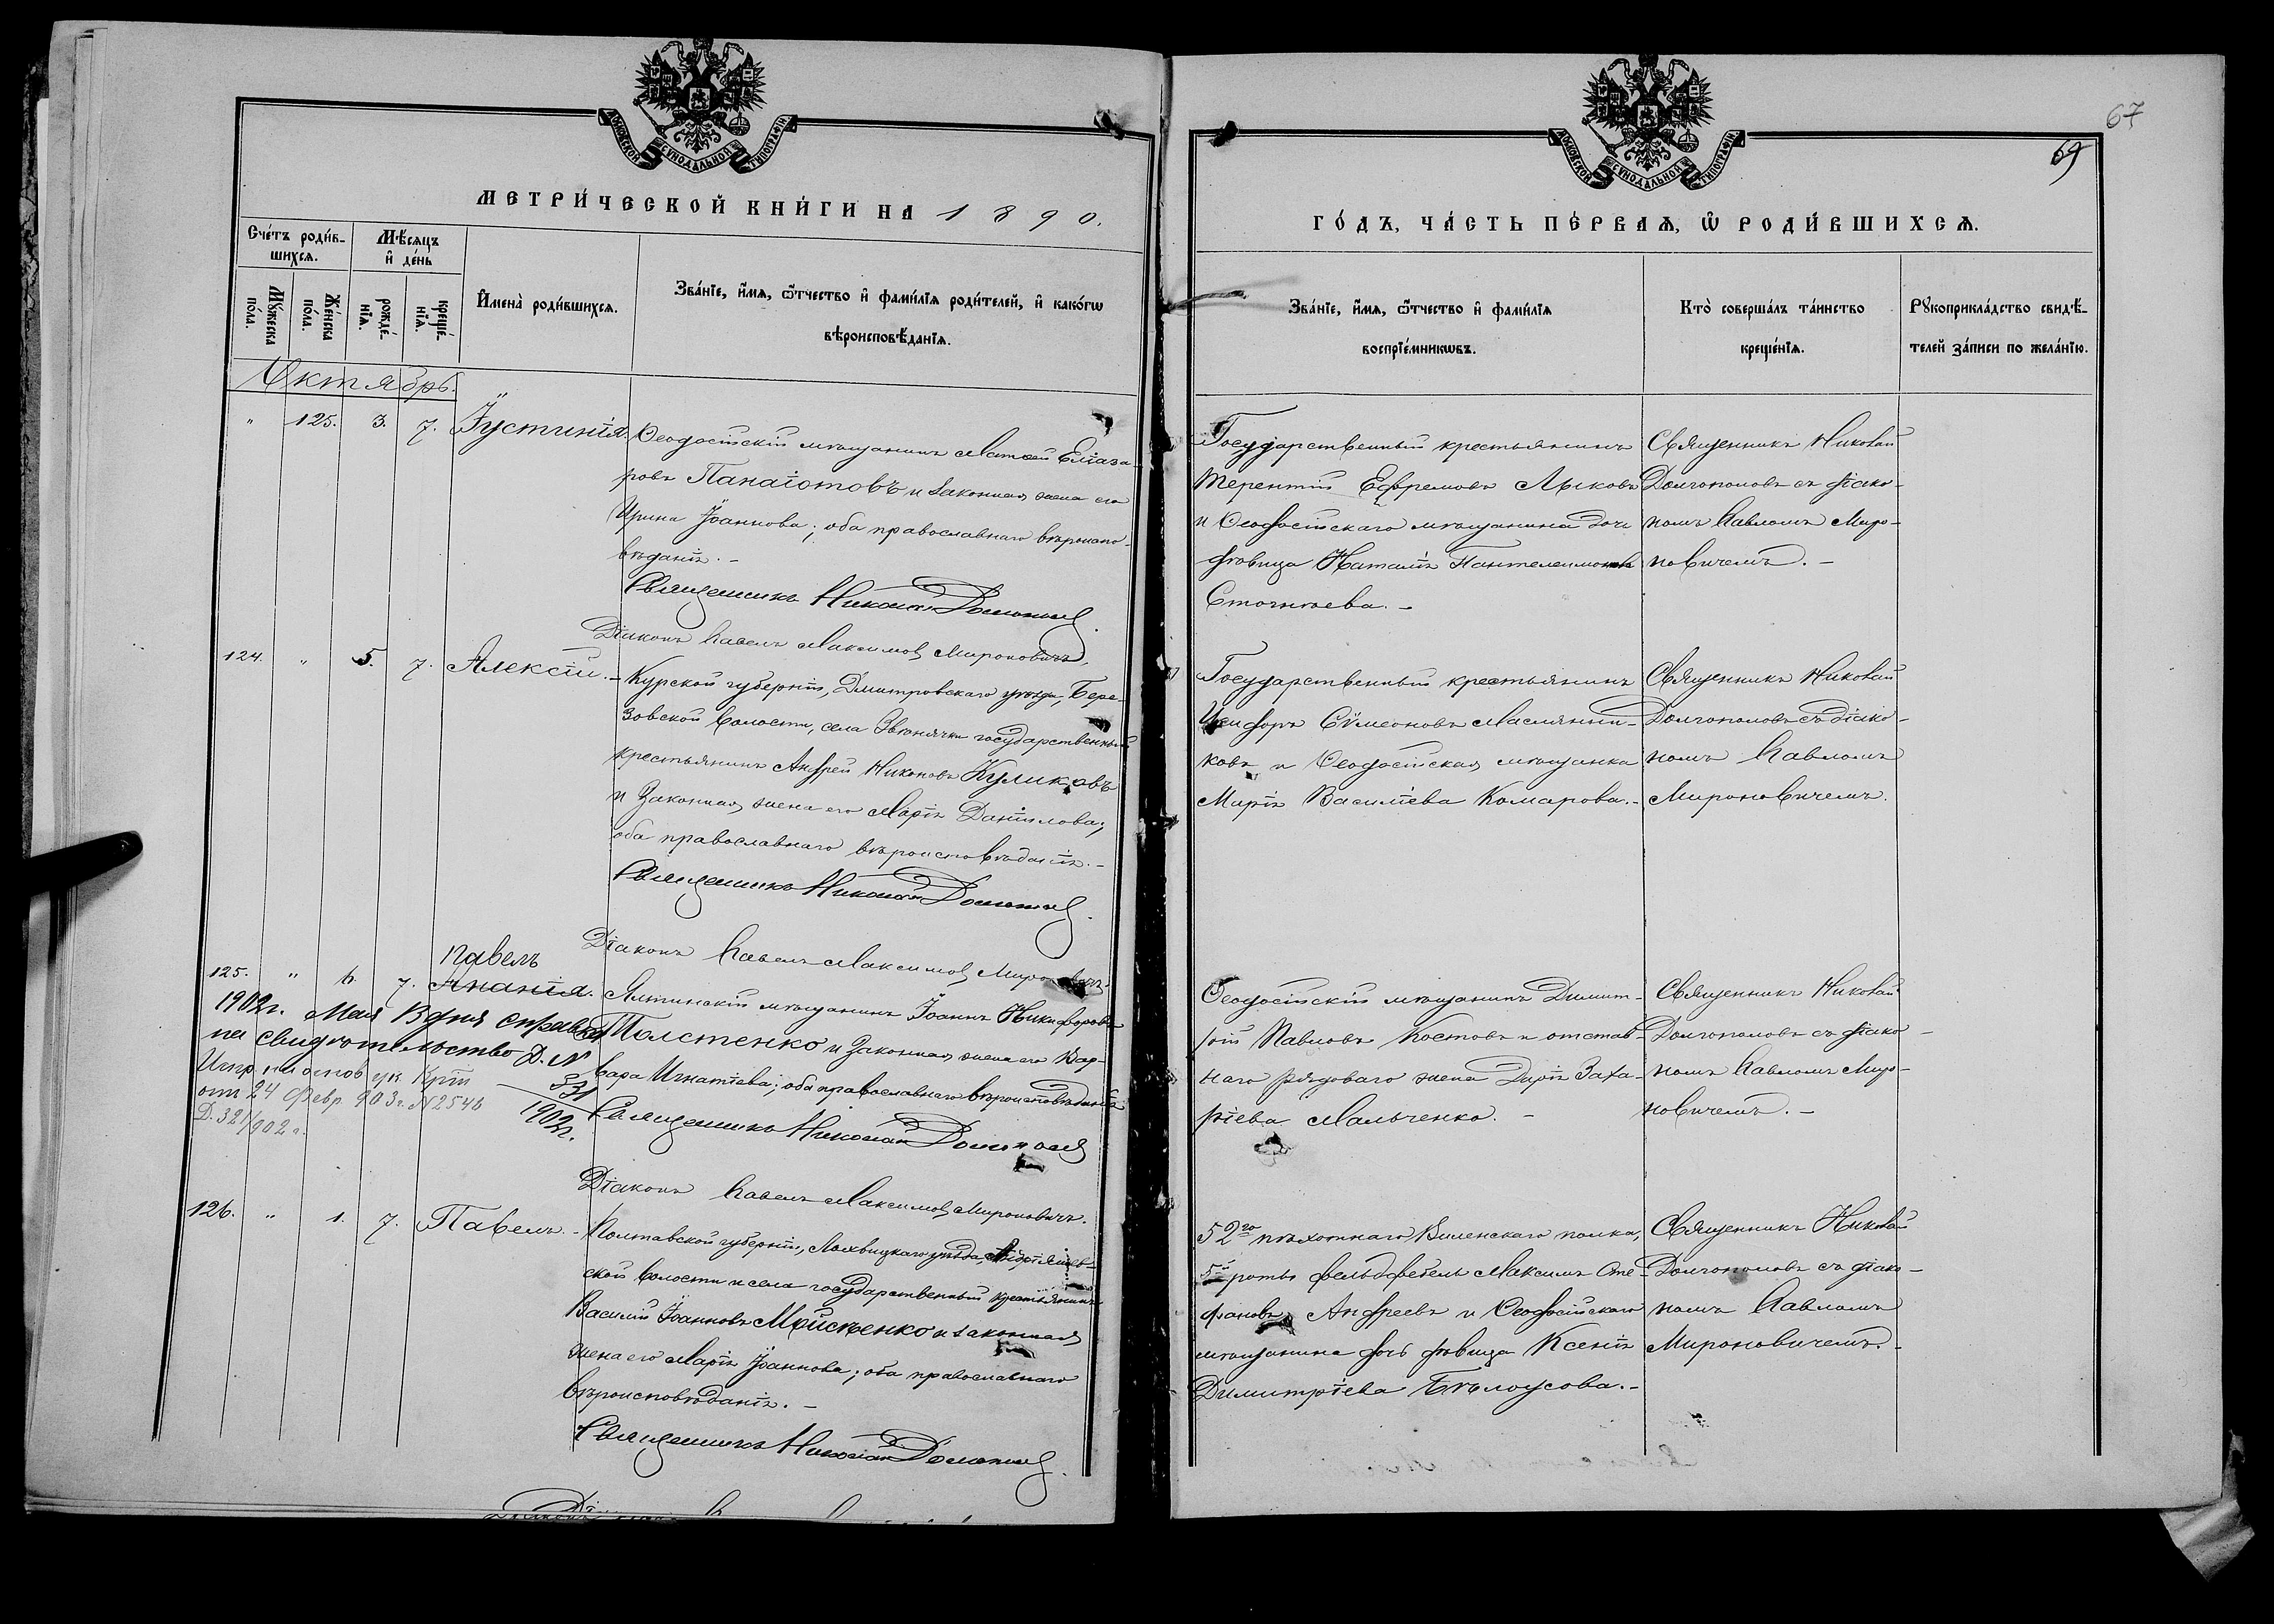 МОСКОВСКОЙ СѴНОДАЛЬНОЙ ТИПОГРАФІИ
МЕТРИ́ЧЕСКОЙ КНИ́ГИ НА 1890.
Сче́тъ роди́в-
шихсѧ.
Мѣ́сѧцъ
и҆ де́нь
Мꙋ́жеска
по́ла.
Же́нска
по́ла.
рожде́-
нїѧ.
креще́-
нїѧ.
И҆мена̀ роди́вшихсѧ.
Зва́нїе, и҆́мѧ, ѻ҆́тчество и҆ фами́лїѧ роди́телей, и҆ како́гѡ
вѣроисповѣ́данїѧ.
Октябрь.
" 125. 3. 7. Іустинія.
Ѳеодосійскій мѣщанинъ Матѳей Еліаза-
ровъ Панаіотовъ и законная жена его
Ирина Іоаннова; оба православнаго вѣроиспо-
вѣданія.-
Священникъ Николай Долгополовъ.
Діаконъ Павелъ Максимов Мироновичъ.
124. " 5. 7. Алексій.-
Курской губерніи, Дмитровскаго уѣзда, Бере-
зовской волости, села Звенячки государственный
крестьянинъ Андрей Никоновъ Куликовъ
и законная жена его Марія Даніилова;
оба православнаго вѣроисповѣданія.-
Священникъ Николай Долгополовъ.
Діаконъ Павелъ Максимов Мироновичъ.
Павелъ
125. " 6. 7. Ананія.
Ялтинскій мѣщанинъ Іоаннъ Никифоровъ
Толстенко и законная жена его Вар-
вара Игнатіева; оба православнаго вѣроисповѣданія
Священникъ Николай Долгополовъ
Діаконъ Павелъ Максимов Мироновичъ.
1902г. Мая 13 дня справка
на свидѣтельство Д. №
331
1902г.
Испр. на основ. ук.
от 24 Февр. 903г. № 2546
Д. 321/902 г.
126. " 1. 7. Павелъ.-
Полтавской губерніи, Лохвицкаго уѣзда,
ской волости и села государственный крестьянинъ
Василій Іоанновъ Мойсѣенко и законная
жена его Марія Іоаннова; оба православнаго
вѣроисповѣданія.-
Священникъ Николай Долгополовъ.
67
69
МОСКОВСКОЙ СѴНОДАЛЬНОЙ ТИПОГРАФІИ
ГО́ДЪ, ЧА́СТЬ ПЕ́РВАѦ, Ѡ҆ РОДИ́ВШИХСѦ.
Зва́нїе, и҆́мѧ, ѻ҆́тчество и҆ фами́лїѧ
воспрїе́мникѡвъ.
Кто̀ соверша́лъ та́инство
креще́нїѧ.
Рꙋкоприкла́дство свидѣ́-
телей за́писи по жела́нїю.
Государственный крестьянинъ
Терентій Ефремовъ Лыковъ
и Ѳеодосійскаго мѣщанина дочь
дѣвица Наталія Пантелеимонова
Стогнѣева.-
Священникъ Николай
Долгополовъ съ діако-
номъ Павломъ Миро-
новичемъ.-
Государственный крестьянинъ
Никифоръ Сѵмеоновъ Маслянни-
ковъ и Ѳеодосійская мѣщанка
Марія Василіева Комарова.-
Священникъ Николай
Долгополовъ съ діако-
номъ Павломъ
Мироновичемъ.
Ѳеодосійскій мѣщанинъ Димит-
рій Павловъ Костовъ и отстав-
наго рядоваго жена Дарія Заха-
ріева Мальченко.-
Священникъ Николай
Долгополовъ съ діако-
номъ Павломъ Миро-
новичемъ.-
52го пѣхотнаго Виленскаго полка,
5й роты фельдфебель Максимъ Сте-
фановъ Андреевъ и Ѳеодосійскаго
мѣщанина дочь дѣвица Ксенія
Димитріева Бѣлоусова.-
Священникъ Николай
Долгополовъ съ діако-
номъ Павломъ
Мироновичемъ.-